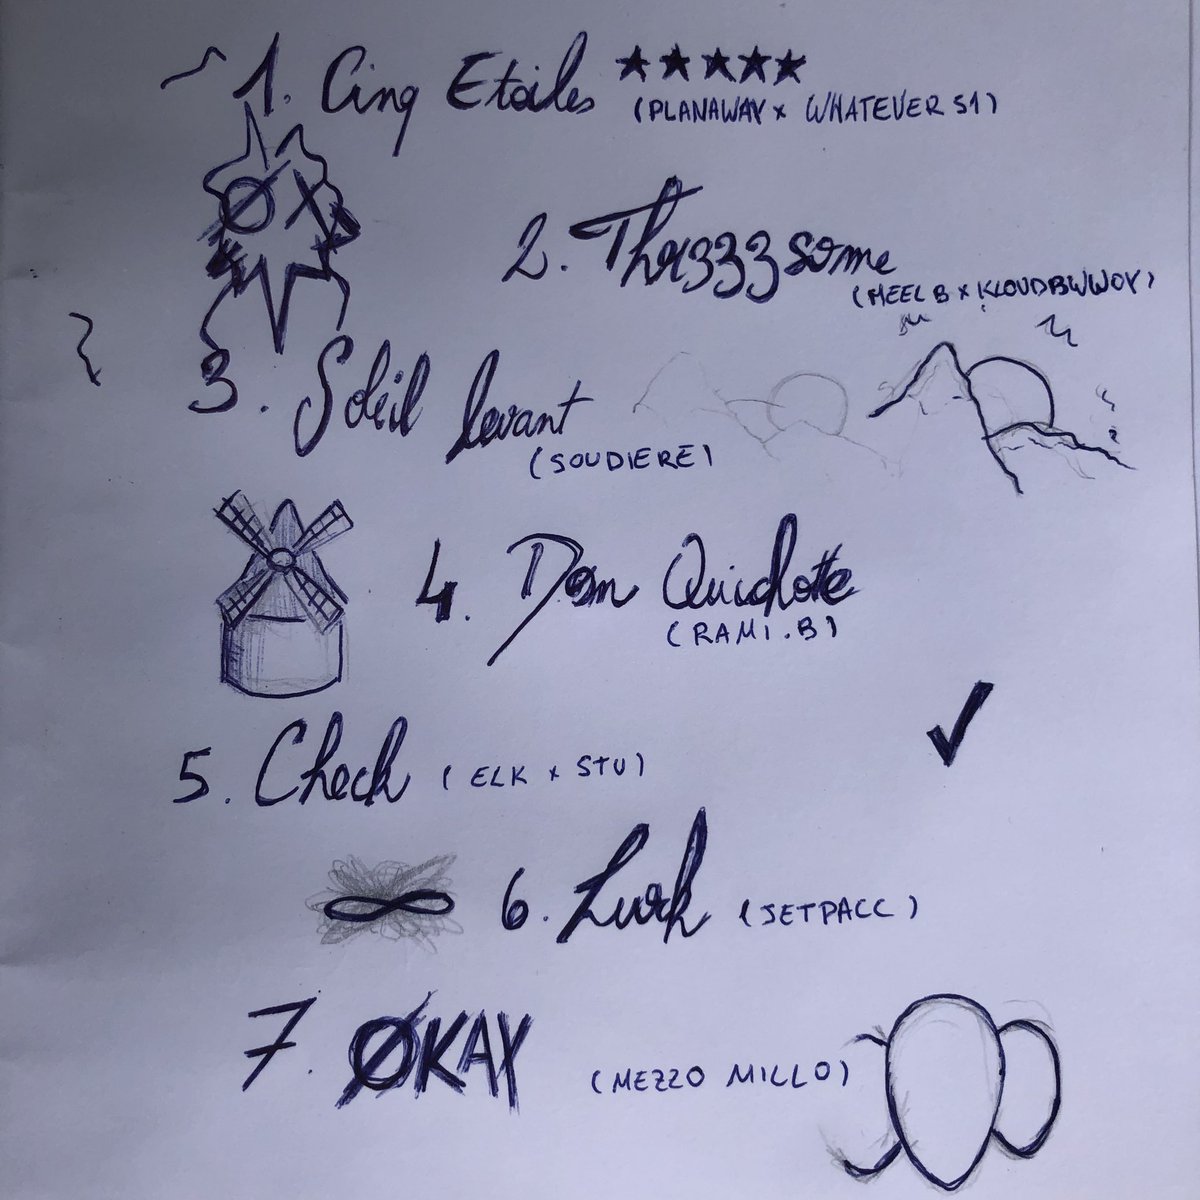 1. Cinq Etoiles ★★★★★
(PLANAWAY x WHATEVER51)
2. Thrizzzsome
(MEEL B x KLOUDBWWOY)
3. Soleil levant
(SOUDIERE)
4. Don Quichotte
(RAMI.B)
5. Check (ELK x STU)
6. Lurk (JETPACC)
7. ØKAY (MEZZO MILLO)